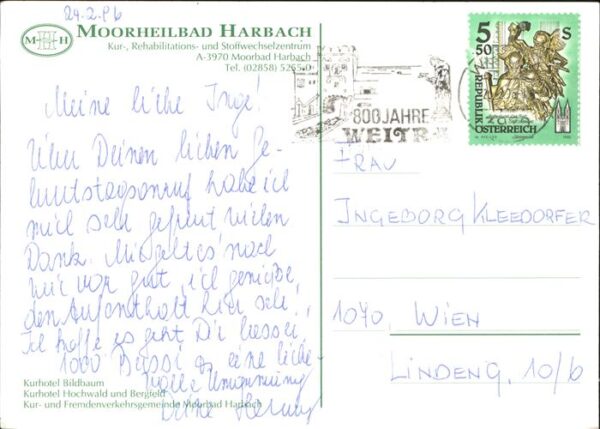 29.2.96
MOORHEILBAD HARBACH
Kur-, Rehabilitations- und Stoffwechselzentrum
A-3970 Moorbad Harbach
Tel. (02858) 5265-0
M H
Meine liebe Inge!
Über Deinen lieben Ge-
burtstagsanruf habe ich
mich sehr gefreut vielen
Dank. Mir geht es nach
wie vor gut, ich genieße
den Aufenthalt hier sehr.
Ich hoffe es geht Dir besser,
1000 Bussi & eine liebe
volle Umarmung
Deine
Kurhotel Bildbaum
Kurhotel Hochwald und Bergfeld
Kur- und Fremdenverkehrsgemeinde Moorbad Harbach
800 JAHRE
WEITRA
5 50 S
REPUBLIK
ÖSTERREICH
FRAU
INGEBORG KLEEDORFER
1070, WIEN
LINDENG. 10/6